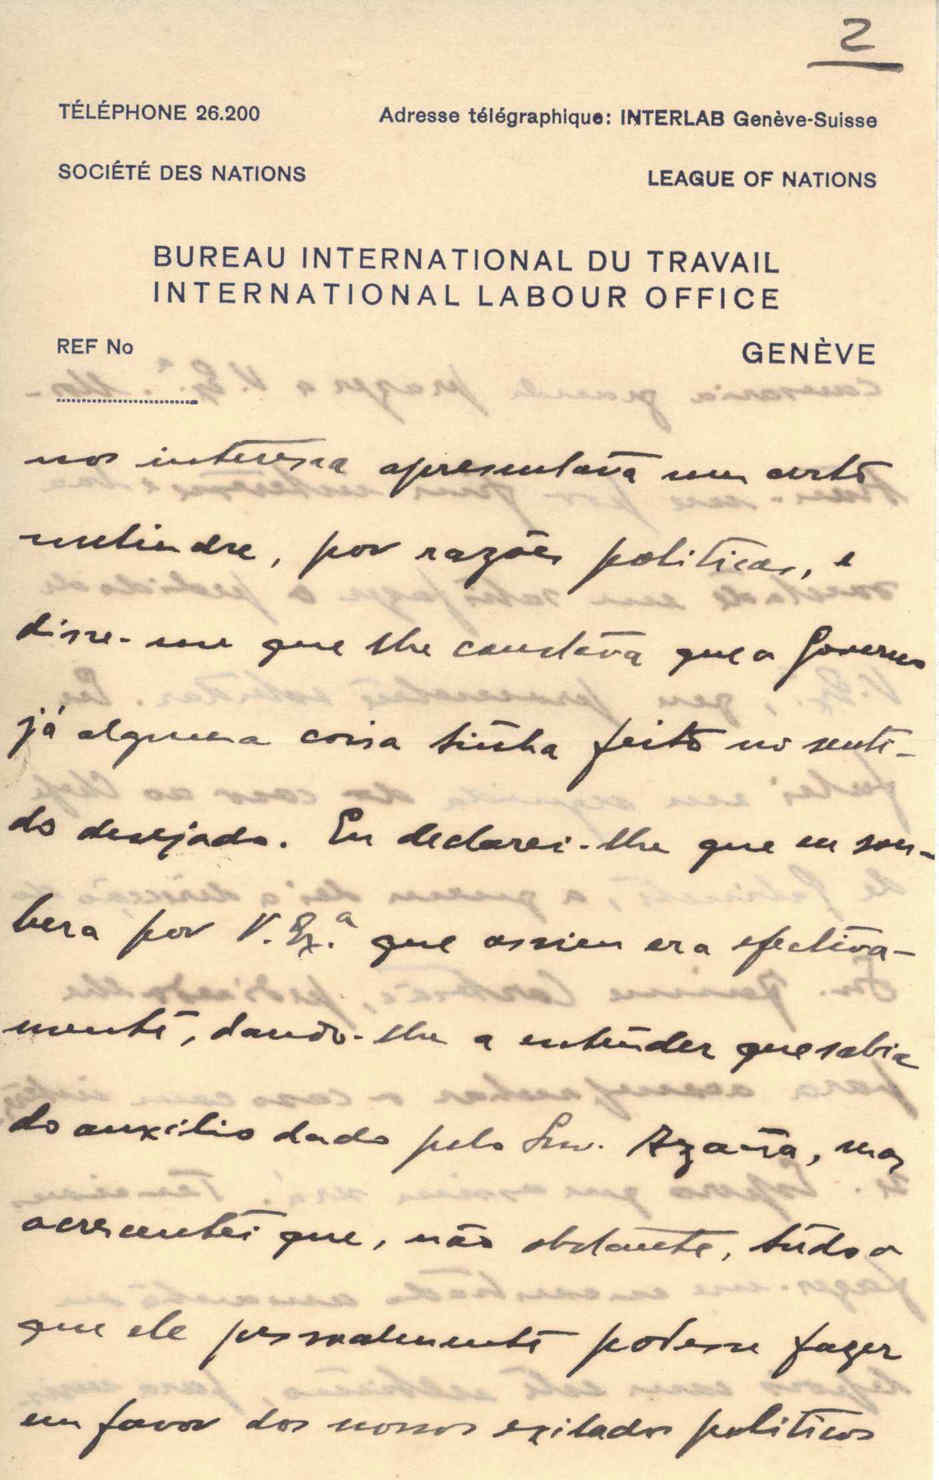 2
TÉLÉPHONE 26.200 Adresse télégraphique: INTERLAB Genève-Suisse
SOCIÉTÉ DES NATIONS LEAGUE OF NATIONS
BUREAU INTERNATIONAL DU TRAVAIL
INTERNATIONAL LABOUR OFFICE
REF No GENÈVE
nos interessa apresentava um certo
melindre, por razões politicas, e
disse-me que lhe constava que o Governo
já alguma coisa tinha feito no senti-
do desejado. Eu declarei-lhe que eu sou-
bera por V. Ex.ª que assim era efectiva-
mente, dando-lhe a entender que sabia
do auxilio dado pelo Snr. Azaña, mas
acrescentei que, não obstante, tudo o
que ele pessoalmente podesse fazer
em favor dos nossos exilados politicos